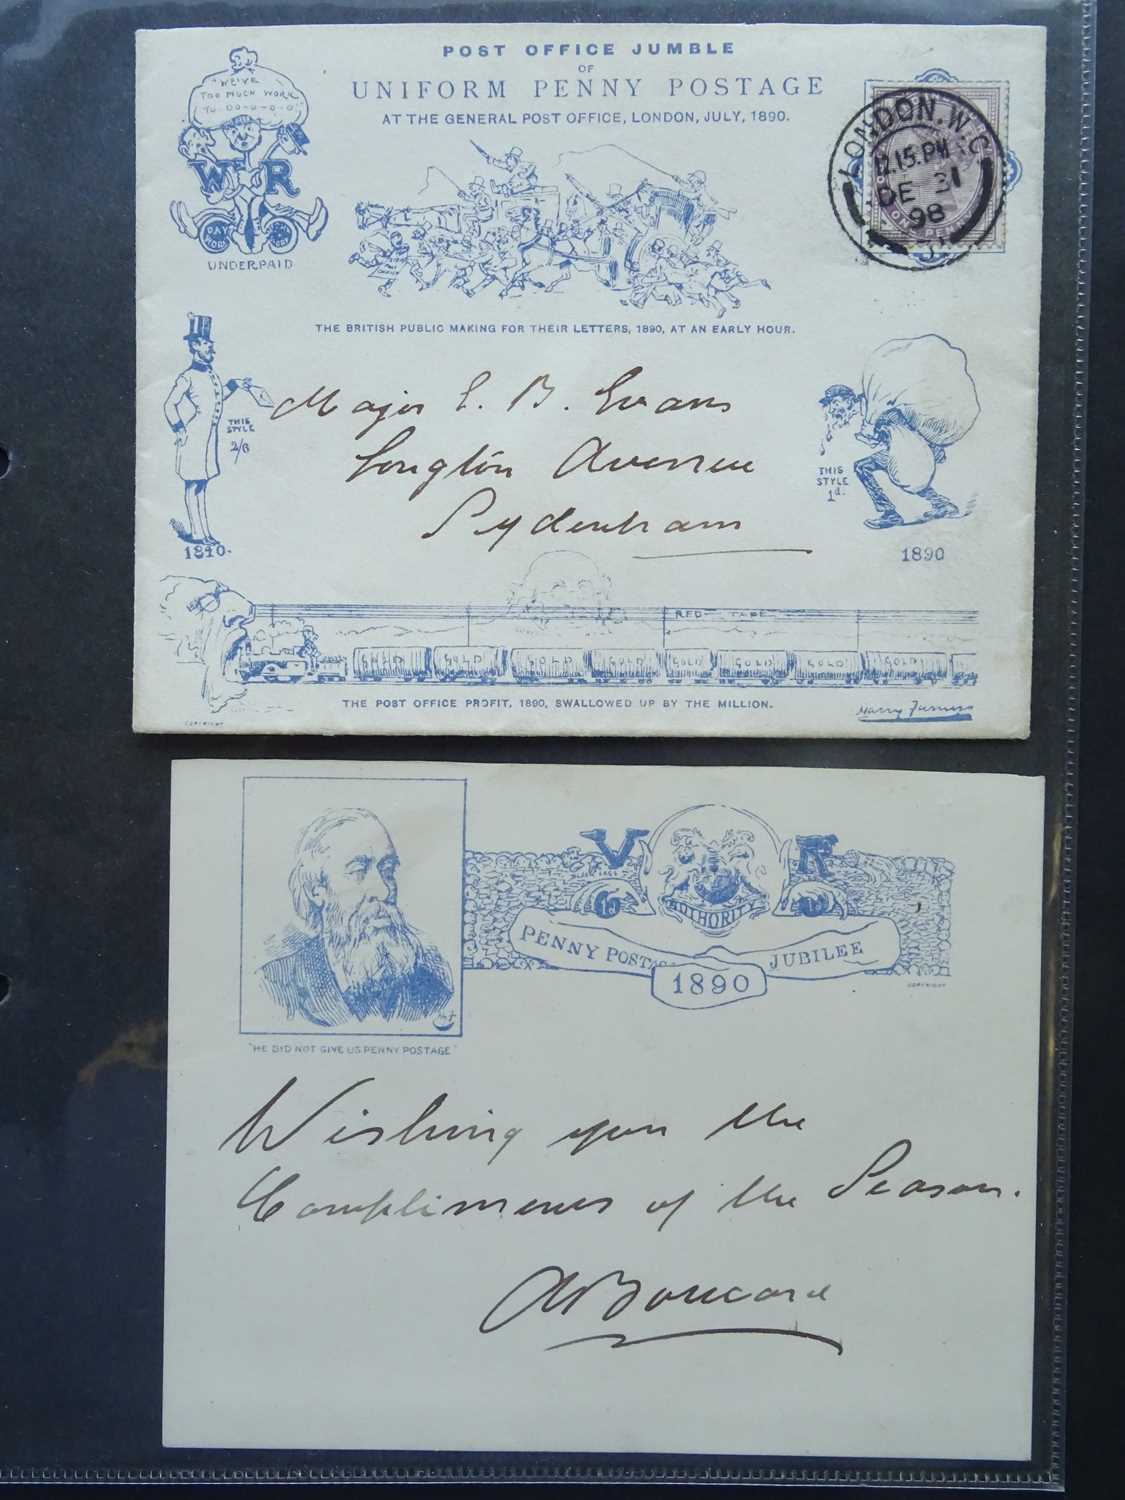 POST OFFICE JUMBLE
OF
UNIFORM PENNY POSTAGE
AT THE GENERAL POST OFFICE, LONDON, JULY, 1890.
"WE'VE
TOO MUCH WORK
TO DO-O-O-O"
W R
DAY WORK
UNDERPAID
LONDON. W.C
12.15.PM
DE 31
98
ONE PENNY
THE BRITISH PUBLIC MAKING FOR THEIR LETTERS, 1890, AT AN EARLY HOUR.
Major E. B. Evans
Longton Avenue
Sydenham
THIS
STYLE
2/6
1840.
THIS
STYLE
1d.
1890
RED TAPE
GOLD GOLD GOLD GOLD GOLD GOLD GOLD GOLD
THE POST OFFICE PROFIT, 1890, SWALLOWED UP BY THE MILLION.
COPYRIGHT
Harry Furniss
V R
1d 1d
AUTHORITY
PENNY POSTAGE JUBILEE
1890
COPYRIGHT
"HE DID NOT GIVE US PENNY POSTAGE"
Wishing you the
Compliments of the Season.
A Boucard